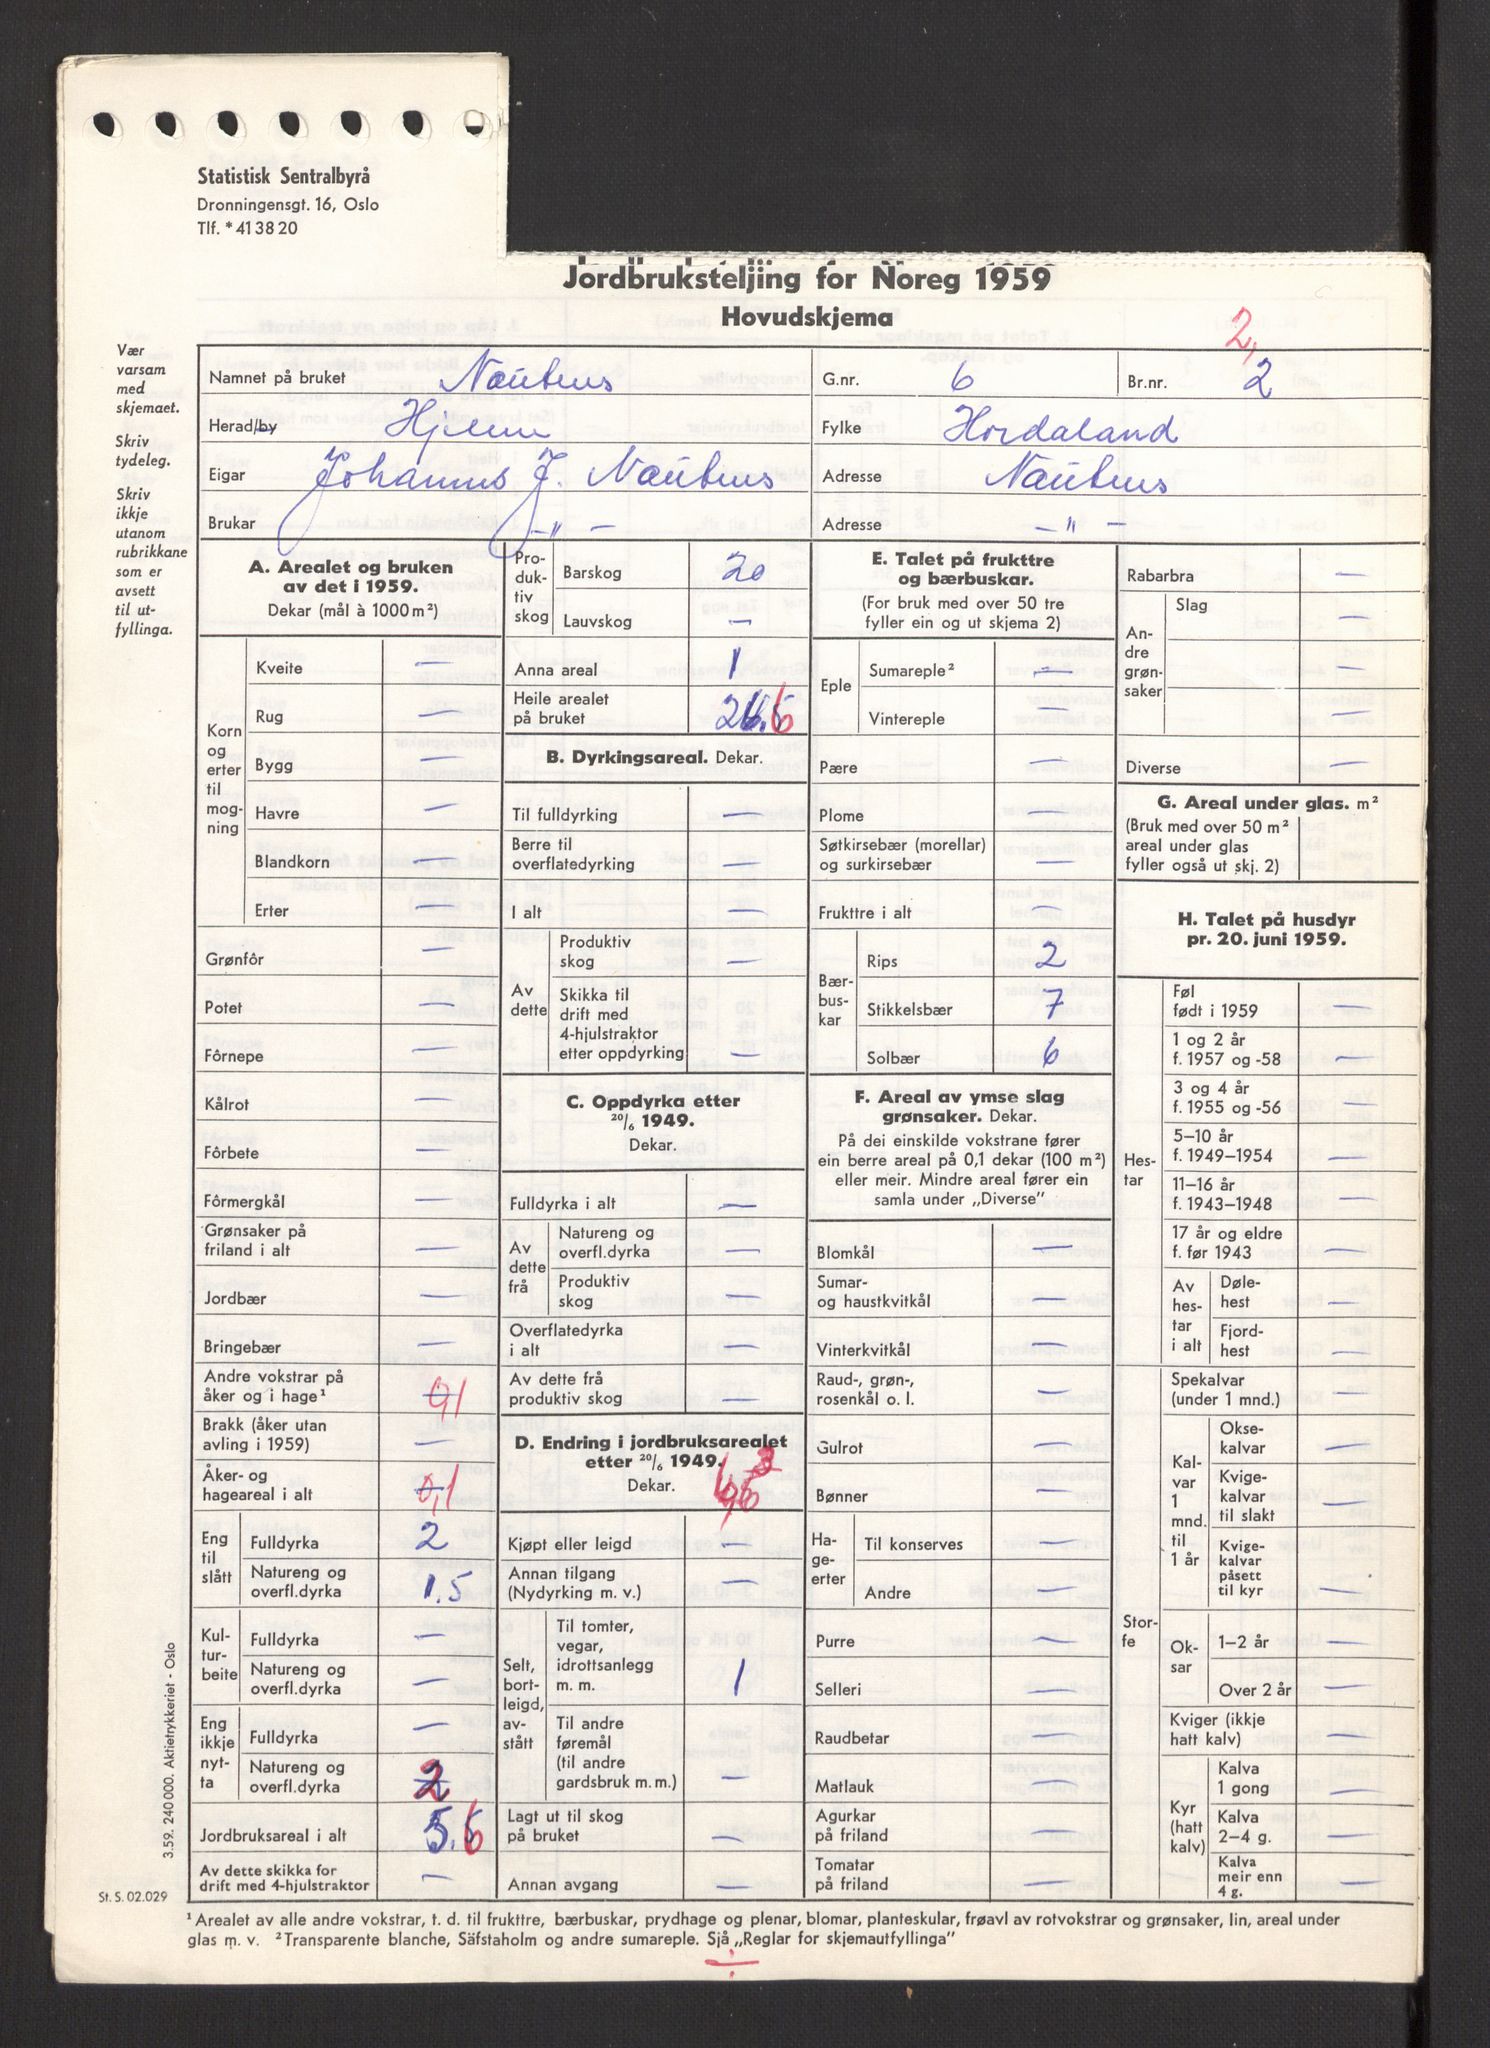 Statistisk Sentralbyrå
Dronningensgt. 16, Oslo
Tlf. *41 38 20
Jordbruksteljing for Noreg 1959
Hovudskjema
2,
Vær
varsam
med
skjemaet.
Skriv
tydeleg.
Skriv
ikkje
utanom
rubrikkane
som er
avsett
til ut-
fyllinga.
Namnet på bruket Nautnes G.nr. 6 Br.nr. 2
Herad/by Hjelme Fylke Hordaland
Eigar Johannes J. Nautnes Adresse Nautnes
Brukar -"- Adresse -"-
A. Arealet og bruken
av det i 1959.
Dekar (mål à 1000 m²)
Korn
og
erter
til
mog-
ning
Kveite —
Rug —
Bygg —
Havre —
Blandkorn —
Erter —
Grønfôr —
Potet —
Fôrnepe —
Kålrot —
Fôrbete —
Fôrmergkål —
Grønsaker på
friland i alt —
Jordbær —
Bringebær —
Andre vokstrar på
åker og i hage¹ 0,1
Brakk (åker utan
avling i 1959) —
Åker- og
hageareal i alt 0,1
Eng
til
slått
Fulldyrka 2
Natureng og
overfl.dyrka 1.5
Kul-
tur-
beite
Fulldyrka —
Natureng og
overfl.dyrka —
Eng
ikkje
nyt-
ta
Fulldyrka —
Natureng og
overfl.dyrka 2
Jordbruksareal i alt 5.6
Av dette skikka for
drift med 4-hjulstraktor —
Pro-
duk-
tiv
skog
Barskog 20
Lauvskog —
Anna areal 1
Heile arealet
på bruket 26.6
B. Dyrkingsareal. Dekar.
Til fulldyrking —
Berre til
overflatedyrking —
I alt —
Av
dette
Produktiv
skog —
Skikka til
drift med
4-hjulstraktor
etter oppdyrking —
C. Oppdyrka etter
20/6 1949.
Dekar.
Fulldyrka i alt —
Av
dette
frå
Natureng og
overfl.dyrka —
Produktiv
skog —
Overflatedyrka
i alt —
Av dette frå
produktiv skog —
D. Endring i jordbruksarealet
etter 20/6 1949.
Dekar.
Kjøpt eller leigd —
Annan tilgang
(Nydyrking m. v.) —
Selt,
bort-
leigd,
av-
stått
Til tomter,
vegar,
idrottsanlegg
m. m. 1
Til andre
føremål
(til andre
gardsbruk m. m.) —
Lagt ut til skog
på bruket —
Annan avgang —
E. Talet på frukttre
og bærbuskar.
(For bruk med over 50 tre
fyller ein og ut skjema 2)
Eple
Sumareple² —
Vintereple —
Pære —
Plome —
Søtkirsebær (morellar)
og surkirsebær —
Frukttre i alt —
Bær-
bus-
kar
Rips 2
Stikkelsbær 7
Solbær 6
F. Areal av ymse slag
grønsaker. Dekar.
På dei einskilde vokstrane fører
ein berre areal på 0,1 dekar (100 m²)
eller meir. Mindre areal fører ein
samla under „Diverse”
Blomkål —
Sumar-
og haustkvitkål —
Vinterkvitkål —
Raud-, grøn-,
rosenkål o. l. —
Gulrot —
Bønner —
Ha-
ge-
erter
Til konserves —
Andre —
Purre —
Selleri —
Raudbetar —
Matlauk —
Agurkar
på friland —
Tomatar
på friland —
Rabarbra —
An-
dre
grøn-
saker
Slag —
—
—
Diverse —
G. Areal under glas. m²
(Bruk med over 50 m²
areal under glas
fyller også ut skj. 2)
H. Talet på husdyr
pr. 20. juni 1959.
Hes-
tar
Føl
født i 1959 —
1 og 2 år
f. 1957 og -58 —
3 og 4 år
f. 1955 og -56 —
5–10 år
f. 1949–1954 —
11–16 år
f. 1943–1948 —
17 år og eldre
f. før 1943 —
Av
hes-
tar
i alt
Døle-
hest —
Fjord-
hest —
Stor-
fe
Spekalvar
(under 1 mnd.) —
Kal-
var
1
mnd.
til
1 år
Okse-
kalvar —
Kvige-
kalvar
til slakt —
Kvige-
kalvar
påsett
til kyr —
Ok-
sar
1–2 år —
Over 2 år —
Kviger (ikkje
hatt kalv) —
Kyr
(hatt
kalv)
Kalva
1 gong —
Kalva
2–4 g. —
Kalva
meir enn
4 g. —
3.59. 240 000. Aktietrykkeriet - Oslo
St. S. 02.029
¹ Arealet av alle andre vokstrar, t. d. til frukttre, bærbuskar, prydhage og plenar, blomar, planteskular, frøavl av rotvokstrar og grønsaker, lin, areal under
glas m. v. ² Transparente blanche, Säfstaholm og andre sumareple. Sjå „Reglar for skjemautfyllinga”